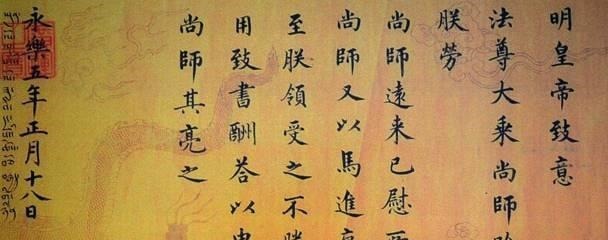 明皇帝致意
法尊大乘尚師
朕勞
尚師遠来已慰
尚師又以馬進
至朕領受之不勝
用致書酬荅以
尚師其亮之
永樂五年正月十八日